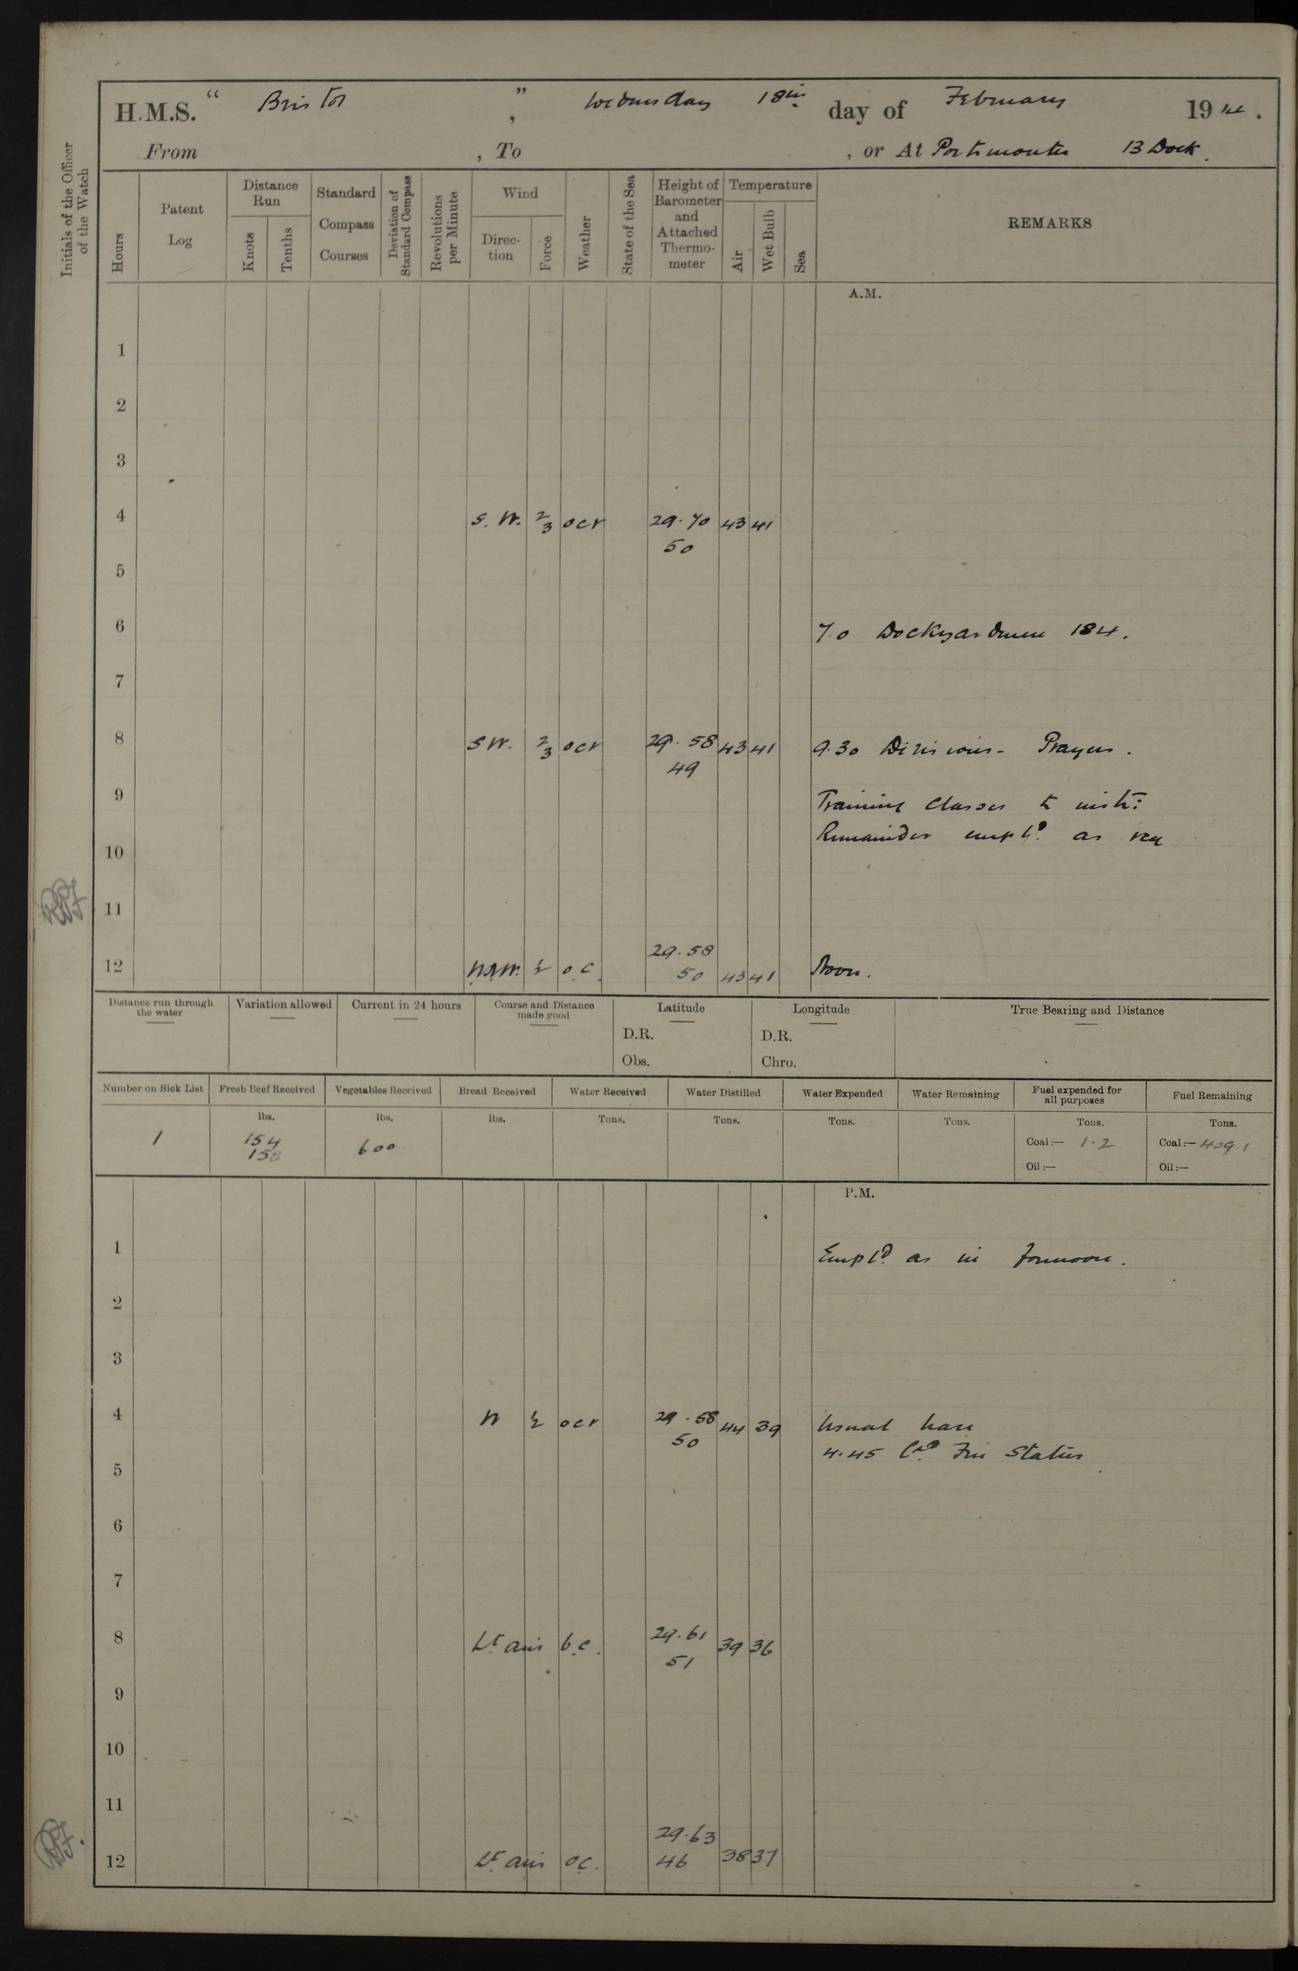 H.M.S. " Bristol ", Wednesday 18th day of February 1914.
From , To , or At Portsmouth 13 Dock.
Initials of the Officer of the Watch
Hours
Patent Log
Distance Run
Knots
Tenths
Standard Compass Courses
Deviation of Standard Compass
Revolutions per Minute
Wind
Direction
Force
Weather
State of the Sea
Height of Barometer and Attached Thermometer
Temperature
Air
Wet Bulb
Sea
REMARKS
A.M.
1
2
3
4 S.W. 2/3 ocr 29.70 43 41
50
5
6 7.0 Dockyardmen 184.
7
8 SW. 2/3 ocr 29.58 43 41 9.30 Divisions - Prayers.
49
9 Training Classes to instn:
Remainder empld. as req
10
11
29.58
12 N.N.W. ½ o.c. 50 43 41 Noon.
Distance run through the water
Variation allowed
Current in 24 hours
Course and Distance made good
Latitude
D.R.
Obs.
Longitude
D.R.
Chro.
True Bearing and Distance
Number on Sick List Fresh Beef Received Vegetables Received Bread Received Water Received Water Distilled Water Expended Water Remaining Fuel expended for all purposes Fuel Remaining
lbs. lbs. lbs. Tons. Tons. Tons. Tons. Tons. Tons.
1 154 600 Coal:— 1.2 Coal:— 409.1
158 Oil:— Oil:—
P.M.
1 Empld. as in forenoon.
2
3
4 N ½ ocr 29.58 44 39 Usual leave
50 4.45 Cld. Fire Stations
5
6
7
8 Lt airs b.c. 29.61 39 36
51
9
10
11
29.63
12 Lt airs o.c. 46 38 37